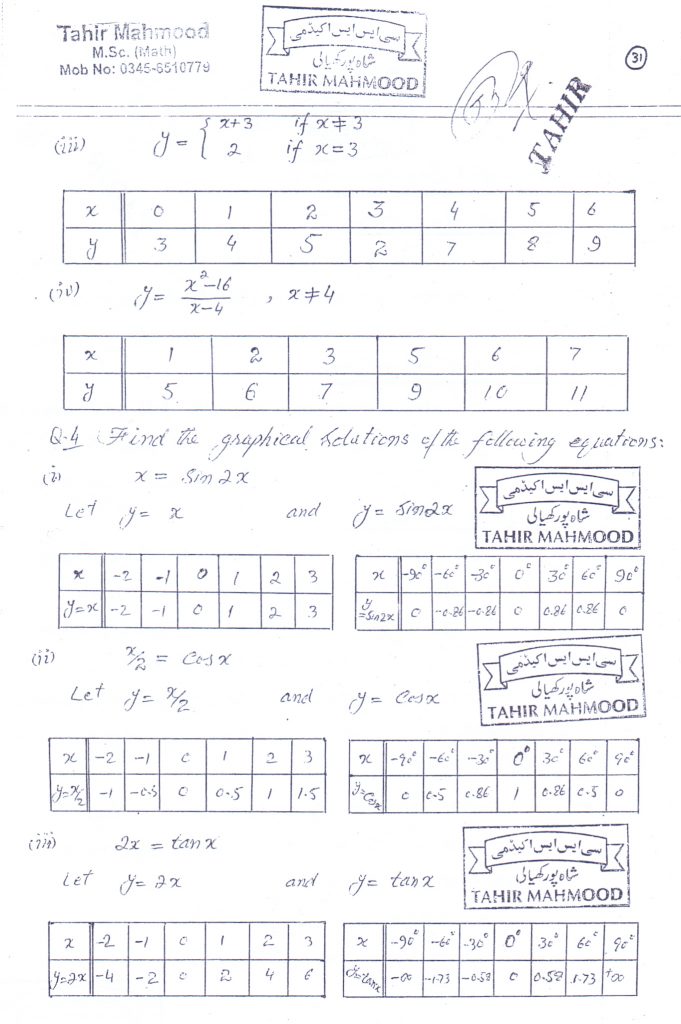 Tahir Mahmood
M.Sc. (Math)
Mob No: 0345-6510779
سی ایس ایس اکیڈمی
شاہ پور کھیالی
TAHIR MAHMOOD
TAHIR
31
(iii) y = { x+3 if x ≠ 3
2 if x = 3
x 0 1 2 3 4 5 6
y 3 4 5 2 7 8 9
(iv) y = x²-16 / x-4 , x ≠ 4
x 1 2 3 5 6 7
y 5 6 7 9 10 11
Q.4 Find the graphical Solutions of the following equations:
(i) x = Sin2x
Let y = x and y = Sin2x
سی ایس ایس اکیڈمی
شاہ پور کھیالی
TAHIR MAHMOOD
x -2 -1 0 1 2 3
y=x -2 -1 0 1 2 3
x -90° -60° -30° 0° 30° 60° 90°
y=Sin2x 0 -0.86 -0.86 0 0.86 0.86 0
(ii) x/2 = Cosx
Let y = x/2 and y = Cosx
سی ایس ایس اکیڈمی
شاہ پور کھیالی
TAHIR MAHMOOD
x -2 -1 0 1 2 3
y=x/2 -1 -0.5 0 0.5 1 1.5
x -90° -60° -30° 0° 30° 60° 90°
y=Cosx 0 0.5 0.86 1 0.86 0.5 0
(iii) 2x = tanx
Let y = 2x and y = tanx
سی ایس ایس اکیڈمی
شاہ پور کھیالی
TAHIR MAHMOOD
x -2 -1 0 1 2 3
y=2x -4 -2 0 2 4 6
x -90° -60° -30° 0° 30° 60° 90°
y=tanx -∞ -1.73 -0.58 0 0.58 1.73 +∞